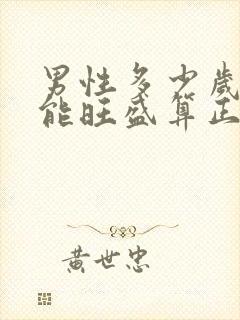 男性多少歲
能旺盛算正
黃世忠